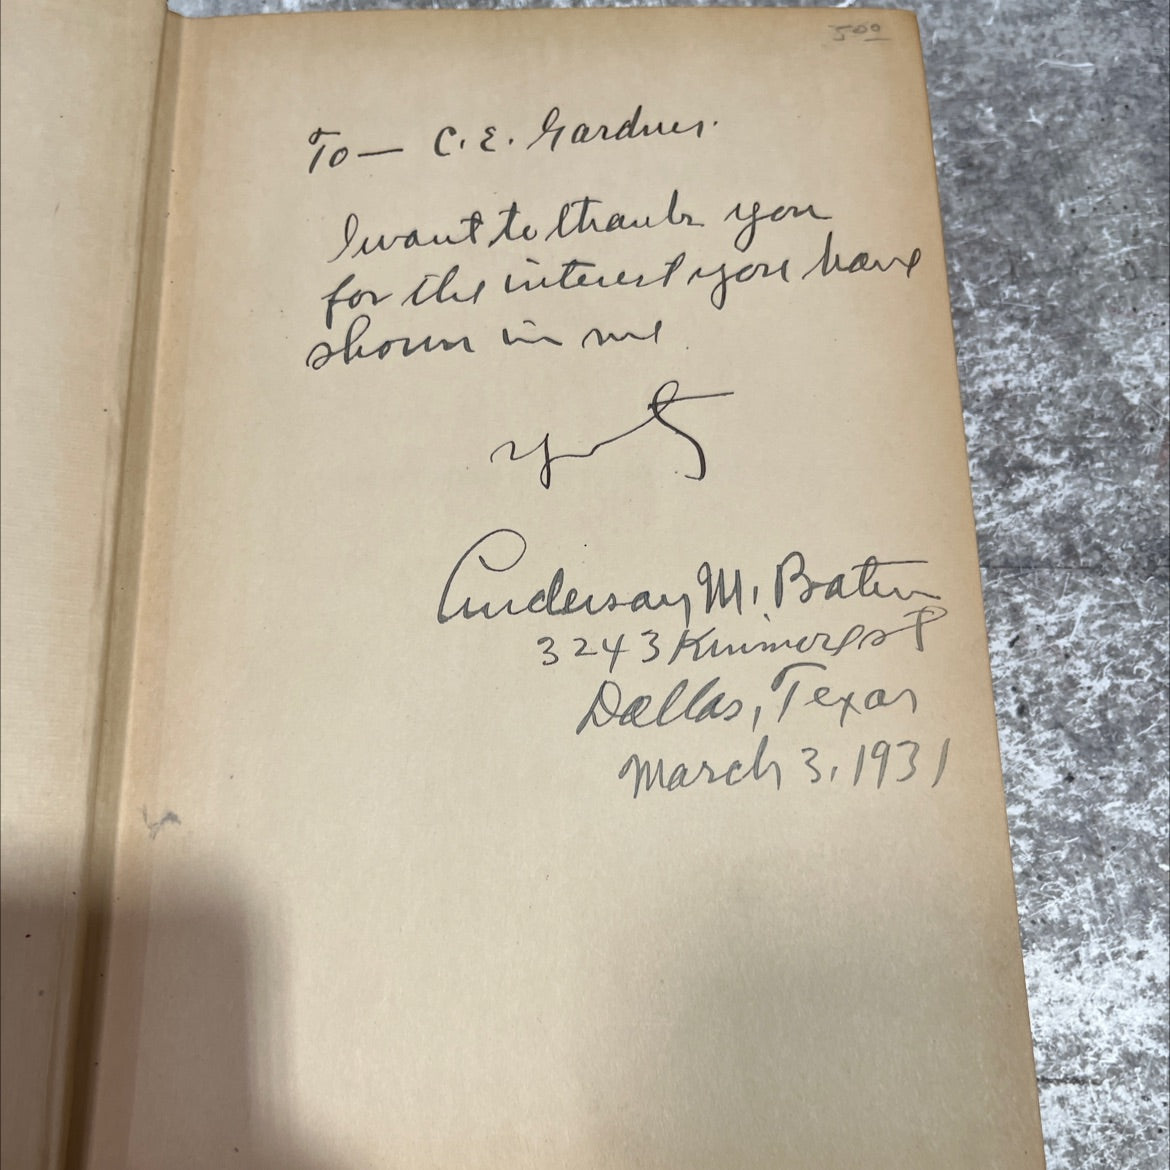 5⁰⁰
To — C. E. Gardner.
I want to thank you
for the interest you have
shown in me
Anderson M. Baten
3243 Kinmore St
Dallas, Texas
March 3, 1931